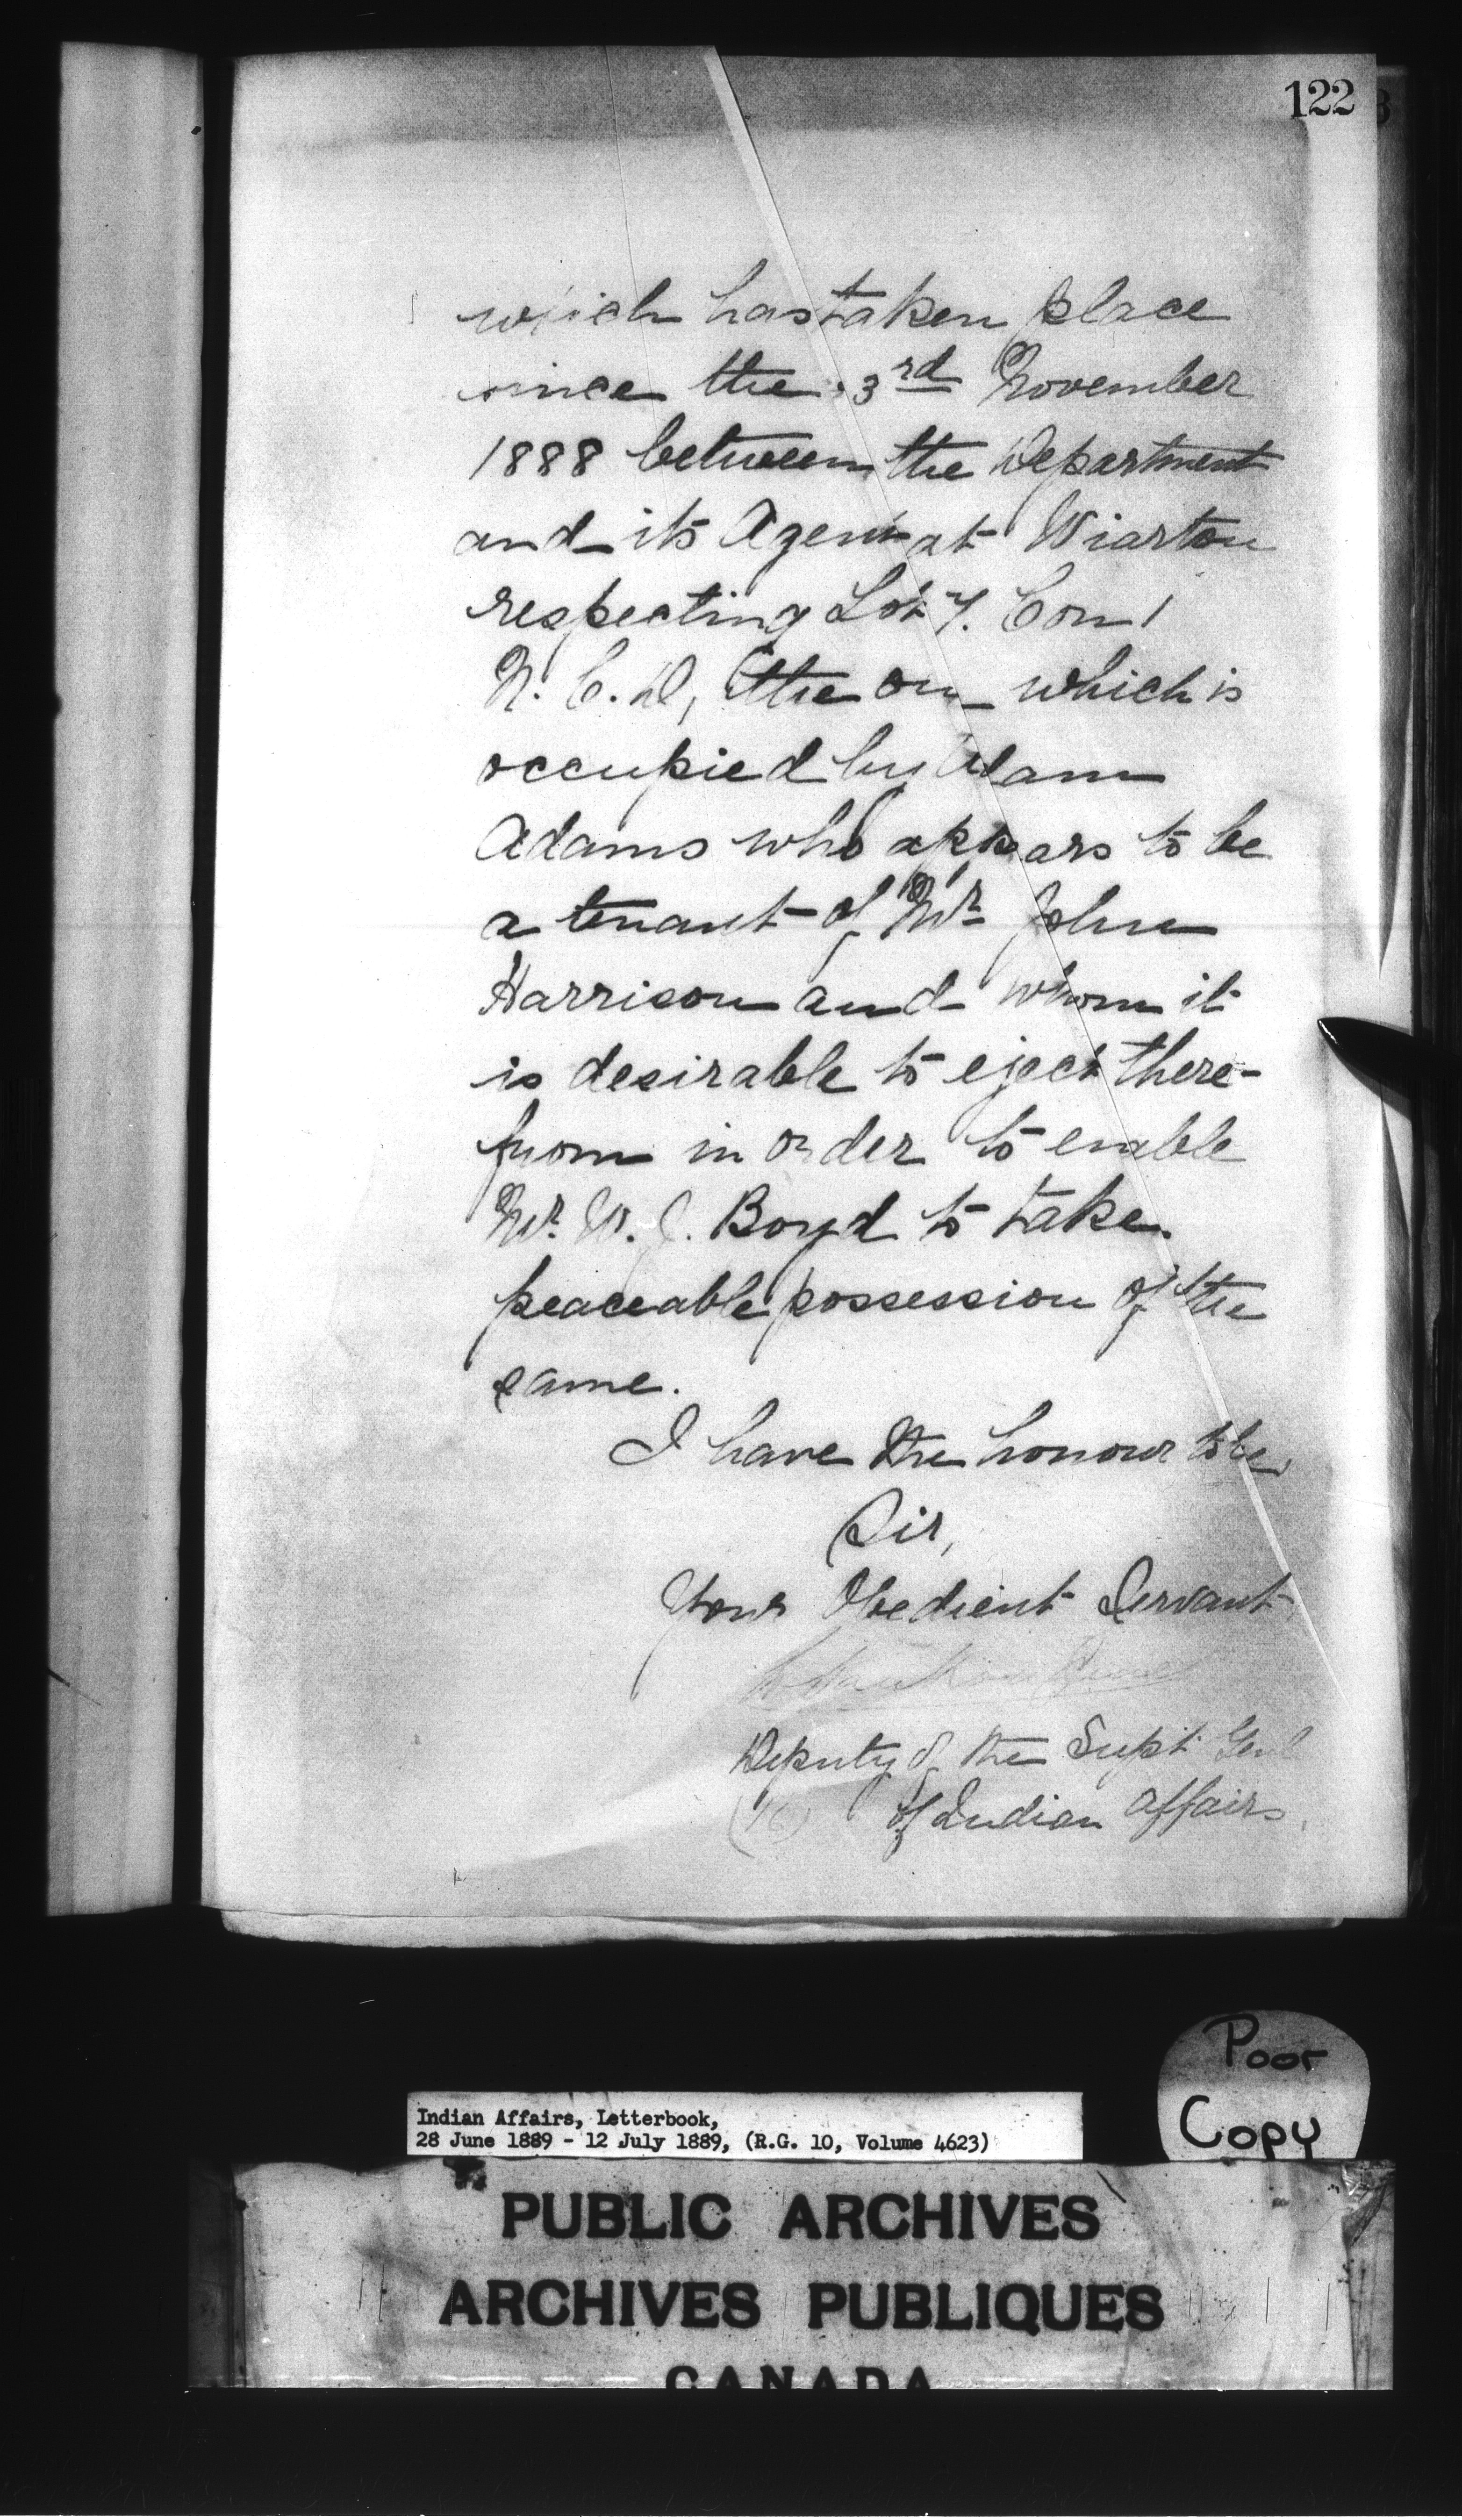 122
which has taken place
since the 3rd November
1888 between the Department
and its Agent at Wiarton
respecting Lot 7. Con 1
the on which is
occupied by Adam
Adams who appears to be
a tenant of Mr John
Harrison and whom it
is desirable to eject there-
from in order to enable
Mr. W. J. Boyd to take
peaceable possession of the
same.
I have the honour to be,
Sir,
Your Obedient Servant
Deputy of the Supt Genl
of Indian Affairs.
Poor
Copy
Indian Affairs, Letterbook,
28 June 1889 - 12 July 1889, (R.G. 10, Volume 4623)
PUBLIC ARCHIVES
ARCHIVES PUBLIQUES
CANADA